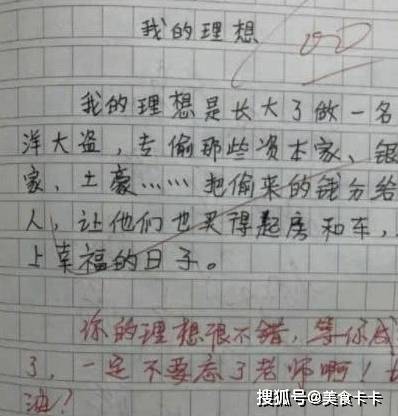 我的理想
我的理想是长大了做一名
洋大盗，专偷那些资本家、银
家、土豪……把偷来的钱分给
人，让他们也买得起房和车，
上幸福的日子。
你的理想很不错，等你成
了，一定不要忘了老师啊！
油！
搜狐号@美食卡卡